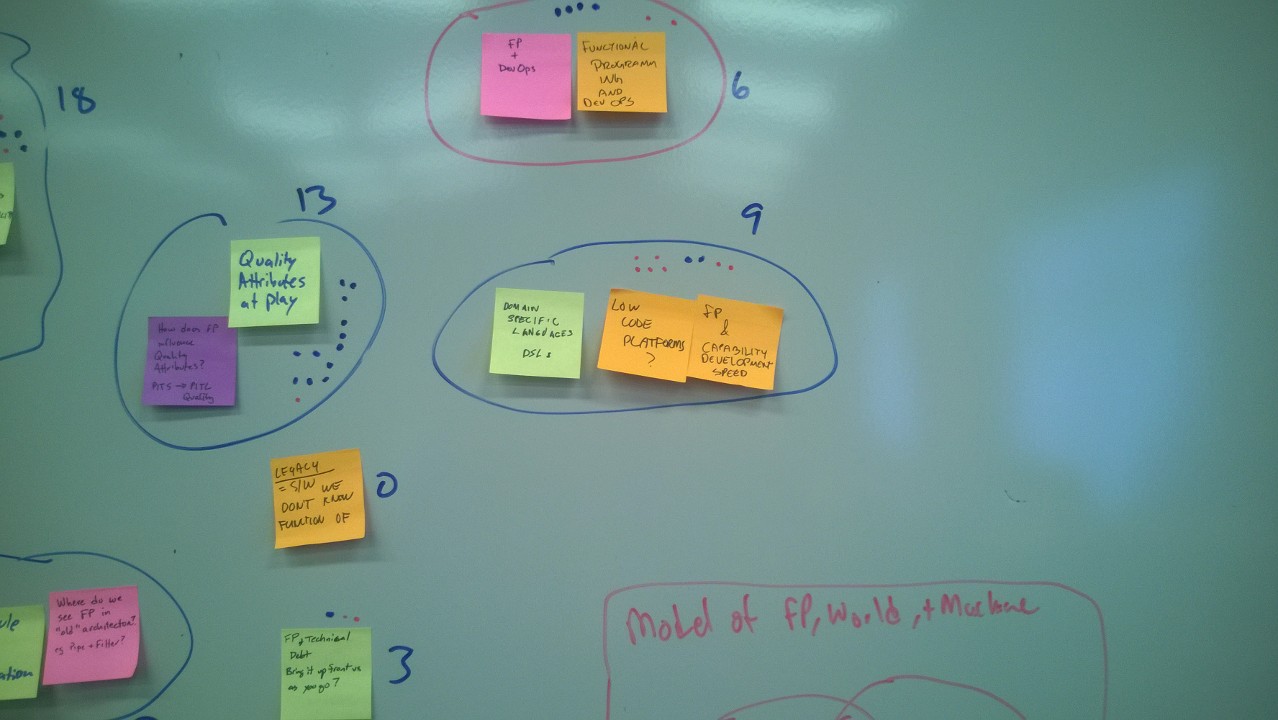 FP
+
DevOps
FUNCTIONAL
PROGRAMM
ING
AND
DEV OPS
6
18
13
Quality
Attributes
at play
How does FP
influence
Quality
Attributes?
PITS → PITL
Quality
9
DOMAIN
SPECIFIC
LANGUAGES
DSLs
LOW
CODE
PLATFORMS
?
FP
&
CAPABILITY
DEVELOPMENT
SPEED
LEGACY
= S/W WE
DONT KNOW
FUNCTION OF
0
Where do we
see FP in
"old" architecture?
eg Pipe + Filter?
FP + Technical
Debt
Bring it up front vs
as you go?
3
Model of FP, World, + Machine